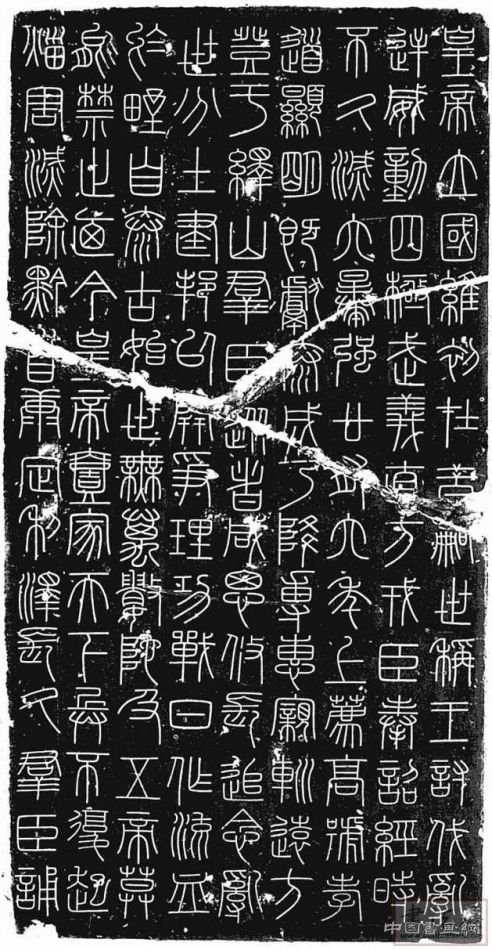 皇帝立國維初在昔嗣世稱王討伐亂
逆威動四極武義直方戎臣奉詔經時
不久滅六暴強廿有六年上薦高號孝
道顯明既獻泰成乃降專惠寴巡遠方
登于繹山羣臣從者咸思攸長追念亂
世分土建邦以開爭理功戰日作流血
於野自泰古始世無萬數陀及五帝莫
能禁止迺今皇帝壹家天下兵不復起
災害滅除黔首康定利澤長久羣臣誦
中國書畫網